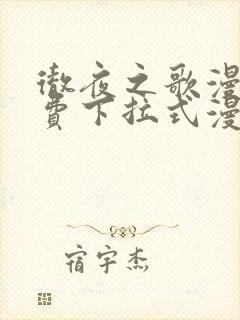 徹夜之歌漫
費下拉式漫
宿宇杰